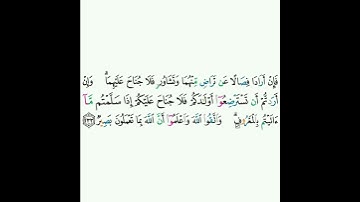 فَإِنْ أَرَادَا فِصَالًا عَن تَرَاضٍ مِّنْهُمَا وَتَشَاوُرٍ فَلَا جُنَاحَ عَلَيْهِمَا ۗ وَإِنْ
أَرَدتُّمْ أَن تَسْتَرْضِعُوٓا۟ أَوْلَـٰدَكُمْ فَلَا جُنَاحَ عَلَيْكُمْ إِذَا سَلَّمْتُم مَّآ
ءَاتَيْتُم بِٱلْمَعْرُوفِ ۗ وَٱتَّقُوا۟ ٱللَّهَ وَٱعْلَمُوٓا۟ أَنَّ ٱللَّهَ بِمَا تَعْمَلُونَ بَصِيرٌ ﴿٢٣٣﴾